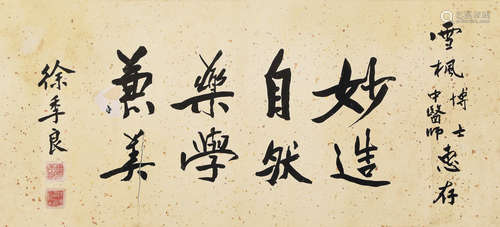 雪楓博士中醫師惠存
妙造
自然
藥學
兼美
徐季良